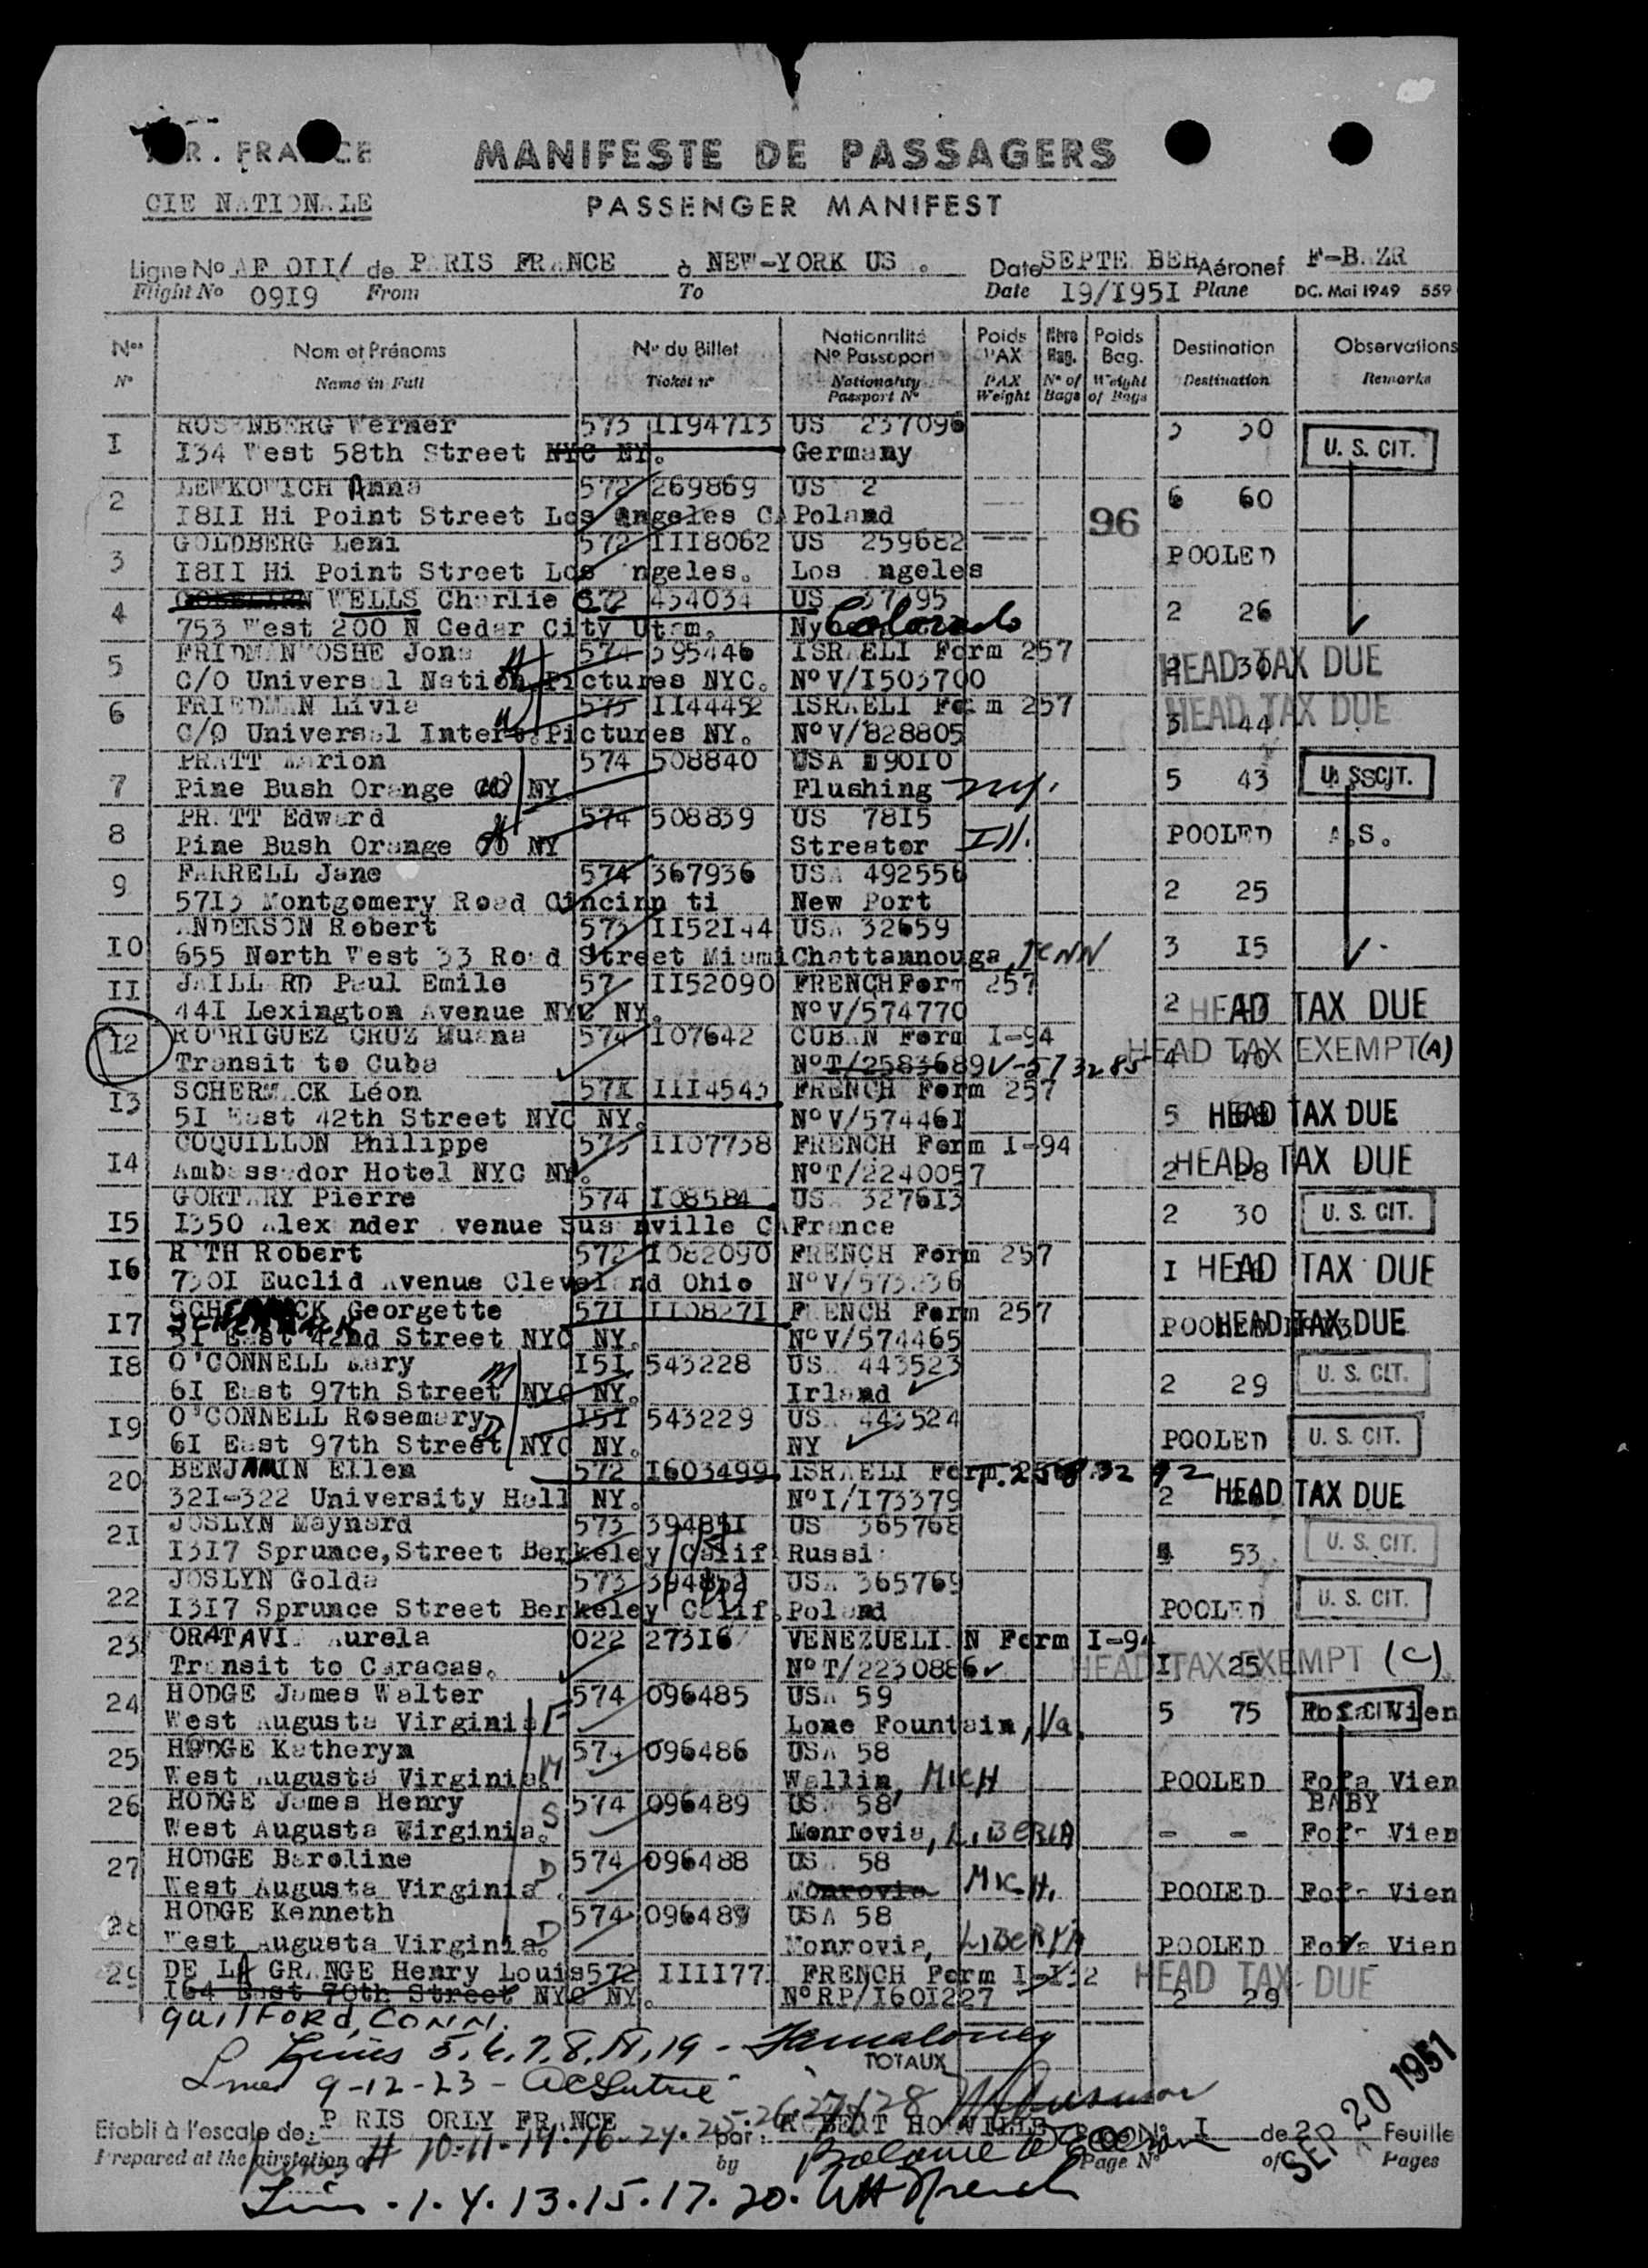 MANIFESTE DE PASSAGERS
CIE NATIONALE
PASSENGER MANIFEST
Ligne No AF OII/ de PARIS FRANCE à NEW-YORK US Date SEPTE BER Aéronef F-B ZR
Flight No 09I9 From To Date I9/I95I Plane DC. Mai 1949 559
Nos Nom et Prénoms No du Billet Nationalité No Passeport Poids PAX Nbre Bag. Poids Bag. Destination Observations
No Name in Full Ticket no Nationality Passport No PAX Weight No of Bags Weight of Bags Destination Remarks
I ROSENBERG Werner 573 II94713 US 237096 3 30 U. S. CIT.
I34 West 58th Street NYC NY. Germany
2 LEWKOWICH Anna 572 269869 US 2 6 60
I8II Hi Point Street Los Angeles CA Poland 96
3 GOLDBERG Leni 572 III8062 US 259682 POOLED
I8II Hi Point Street Los ngeles. Los ngeles
4 WELLS Charlie 572 454034 US 2 26
753 West 200 N Cedar City Utam. Ny Colorado
5 FRIDMAN MOSHE Jona 574 395446 ISRAELI Form 257 HEAD TAX DUE
C/O Universal Nation Pictures NYC. No V/I503700
6 FRIEDMAN Livia 573 II44452 ISRAELI Form 257 3 44 HEAD TAX DUE
C/O Universal Intern.Pictures NY. No V/828805
7 PRATT Marion 574 508840 USA 19010 5 43 U. S. CIT.
Pine Bush Orange CO NY Flushing NY.
8 PRATT Edward 574 508839 US 7815 POOLED A.S.
Pine Bush Orange CO NY Streator Ill.
9 FARRELL Jane 574 367936 USA 492556 2 25
5713 Montgomery Road Cincinn ti New Port
IO ANDERSON Robert 573 II52I44 USA 32659 3 I5
655 North West 33 Road Street Miami Chattamnouga, TENN
II JAILLARD Paul Emile 57 II52090 FRENCH Form 257 2 HEAD TAX DUE
44I Lexington Avenue NYC NY. No V/574770
I2 RODRIGUEZ CRUZ Muana 574 I07642 CUBAN Form I-94 4 40 HEAD TAX EXEMPT (A)
Transit to Cuba No T/2583689 V-573285
I3 SCHERMACK Léon 57I III4543 FRENCH Form 257 5 HEAD TAX DUE
5I East 42th Street NYC NY. No V/57446I
I4 COQUILLON Philippe 573 II07738 FRENCH Form I-94 2 28 HEAD TAX DUE
Ambassador Hotel NYC NY. No T/2240057
I5 GORTARY Pierre 574 I08584 USA 327613 2 30 U. S. CIT.
I350 Alexander Avenue Susanville CA France
I6 ROTH Robert 572 I082090 FRENCH Form 257 I HEAD TAX DUE
730I Euclid Avenue Cleveland Ohio No V/573 36
I7 SCHERMACK Georgette 57I II0827I FRENCH Form 257 POOLED HEAD TAX DUE
5I East 42nd Street NYC NY. No V/574465
I8 O'CONNELL Mary M I5I 543228 USA 443523 2 29 U. S. CIT.
6I East 97th Street NYC NY. Irland
I9 O'CONNELL Rosemary D I5I 543229 USA 443524 POOLED U. S. CIT.
6I East 97th Street NYC NY. NY
20 BENJAMIN Ellen 572 I603499 ISRAELI Form 2 HEAD TAX DUE
32I-322 University Hall NY. No I/I73379
2I JOSLYN Maynard 573 39485I US 365768 53 U. S. CIT.
I3I7 Sprunce,Street Berkeley Calif. Russi
22 JOSLYN Golda 573 394852 USA 365769 POOLED U. S. CIT.
I3I7 Sprunce Street Berkeley Calif. Poland
23 ORATAVI Aurela 022 273I6 VENEZUELIAN Form I-94 I 25 HEAD TAX EXEMPT (C)
Transit to Caracas. No T/2230886
24 HODGE James Walter F 574 096485 USA 59 5 75 Fofa Vien
West Augusta Virginia Lone Fountain, Va.
25 HODGE Katheryn M 574 096486 USA 58 POOLED Fofa Vien
West Augusta Virginia. Wallin, MICH
26 HODGE James Henry S 574 096489 USA 58 - - BABY Fofa Vien
West Augusta Virginia. Monrovia, LIBERIA
27 HODGE Baroline D 574 096488 USA 58 POOLED Fofa Vien
West Augusta Virginia. Monrovia MICH.
28 HODGE Kenneth D 574 096489 USA 58 POOLED Fofa Vien
West Augusta Virginia. Monrovia, LIBERIA
29 DE LA GRANGE Henry Louis 572 IIII77 FRENCH Form 2 29 HEAD TAX DUE
I64 East 70th Street NYC NY. No RP/I60I227
GUILFORD, CONN.
Lines 5,6,7,8,18,19 -
TOTAUX
Lines 9-12-23 -
Etabli à l'escale de: PARIS ORLY FRANCE par: Page No I de 2 Feuille
Prepared at the airstation of by Page No of Pages
Lines # 10-11-14-16-24-25-26-27/28
SEP 20 1951
Lines 1.4.13.15.17.20.